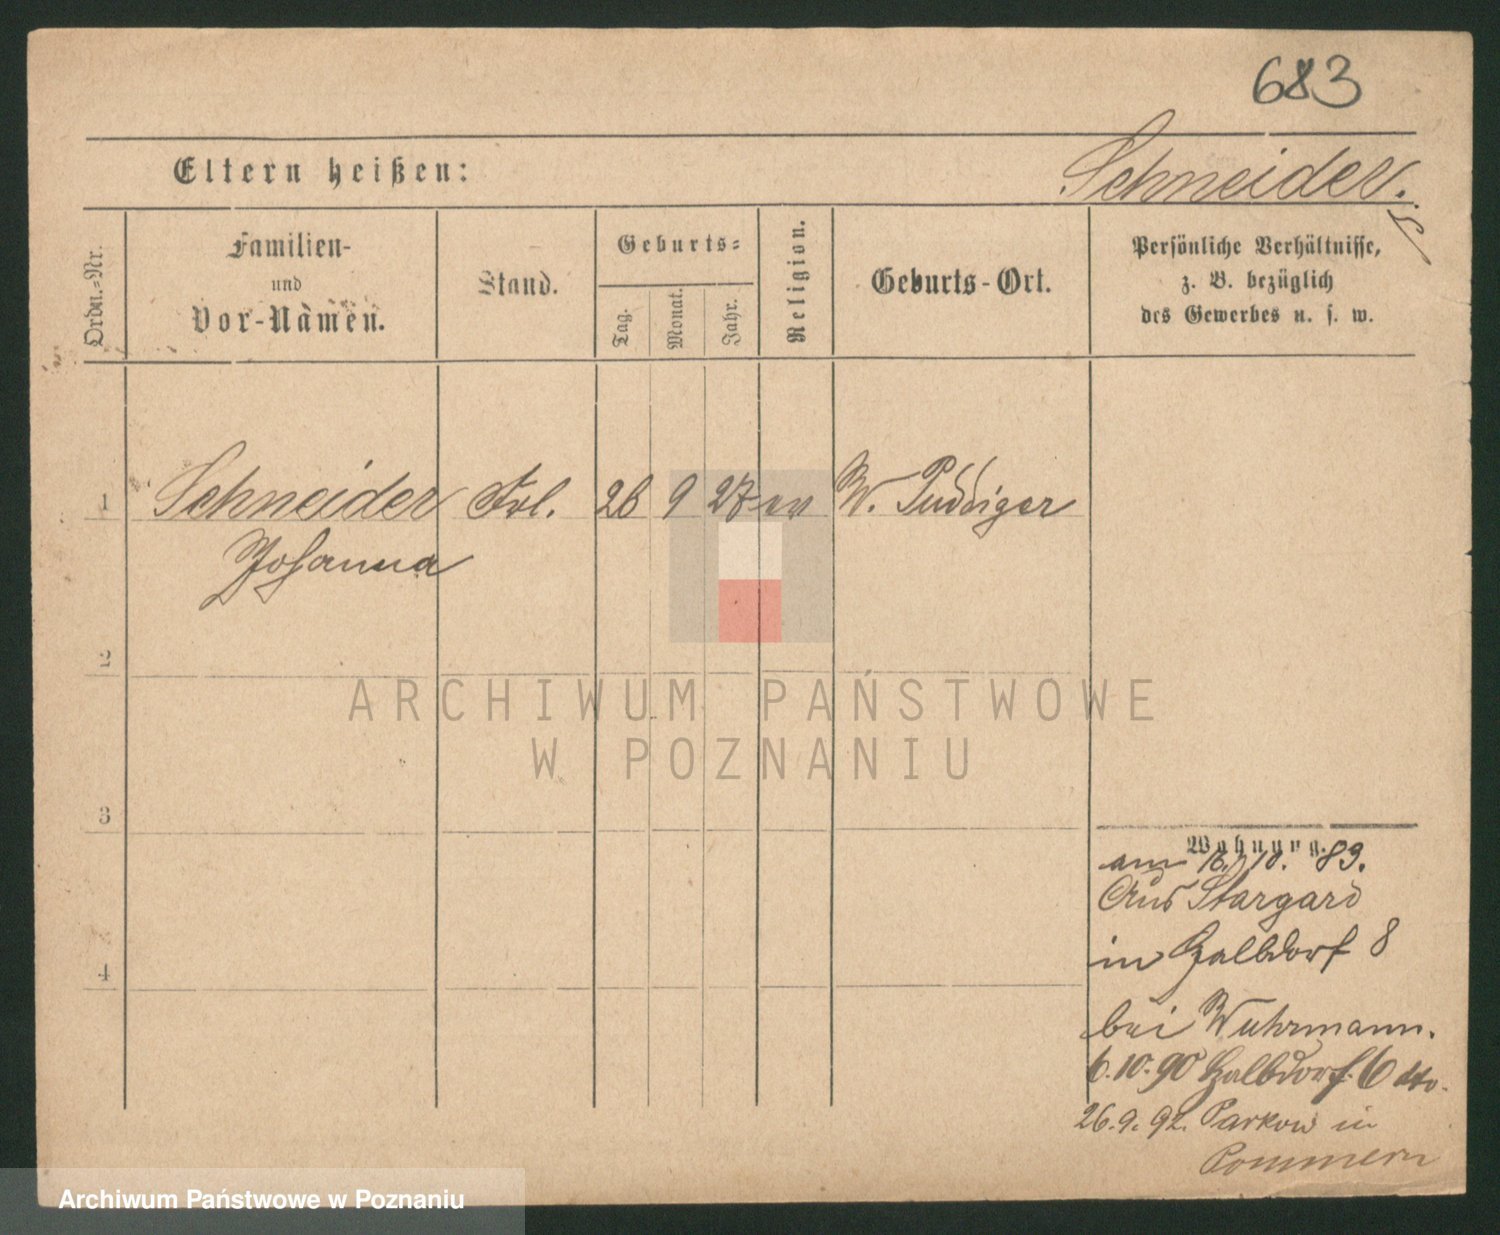 683
Eltern heißen:
Schneider.
Ordn.-Nr.
Familien-
und
Vor-Namen.
Stand.
Geburts-
Tag.
Monat.
Jahr.
Religion.
Geburts-Ort.
Persönliche Verhältnisse,
z. B. bezüglich
des Gewerbes u. s. w.
1
Schneider Frl. 26 9 27 ev W. Pudsiger
Johanna
2
ARCHIWUM PAŃSTWOWE
W POZNANIU
3
Wohnung.
am 16. 10. 89.
Aus Stargard
4
in Halbdorf 8
bei Wuhrmann.
6.10.90 Halbdorf 6 dto.
26.9.92. Parkow in
Pommern
Archiwum Państwowe w Poznaniu